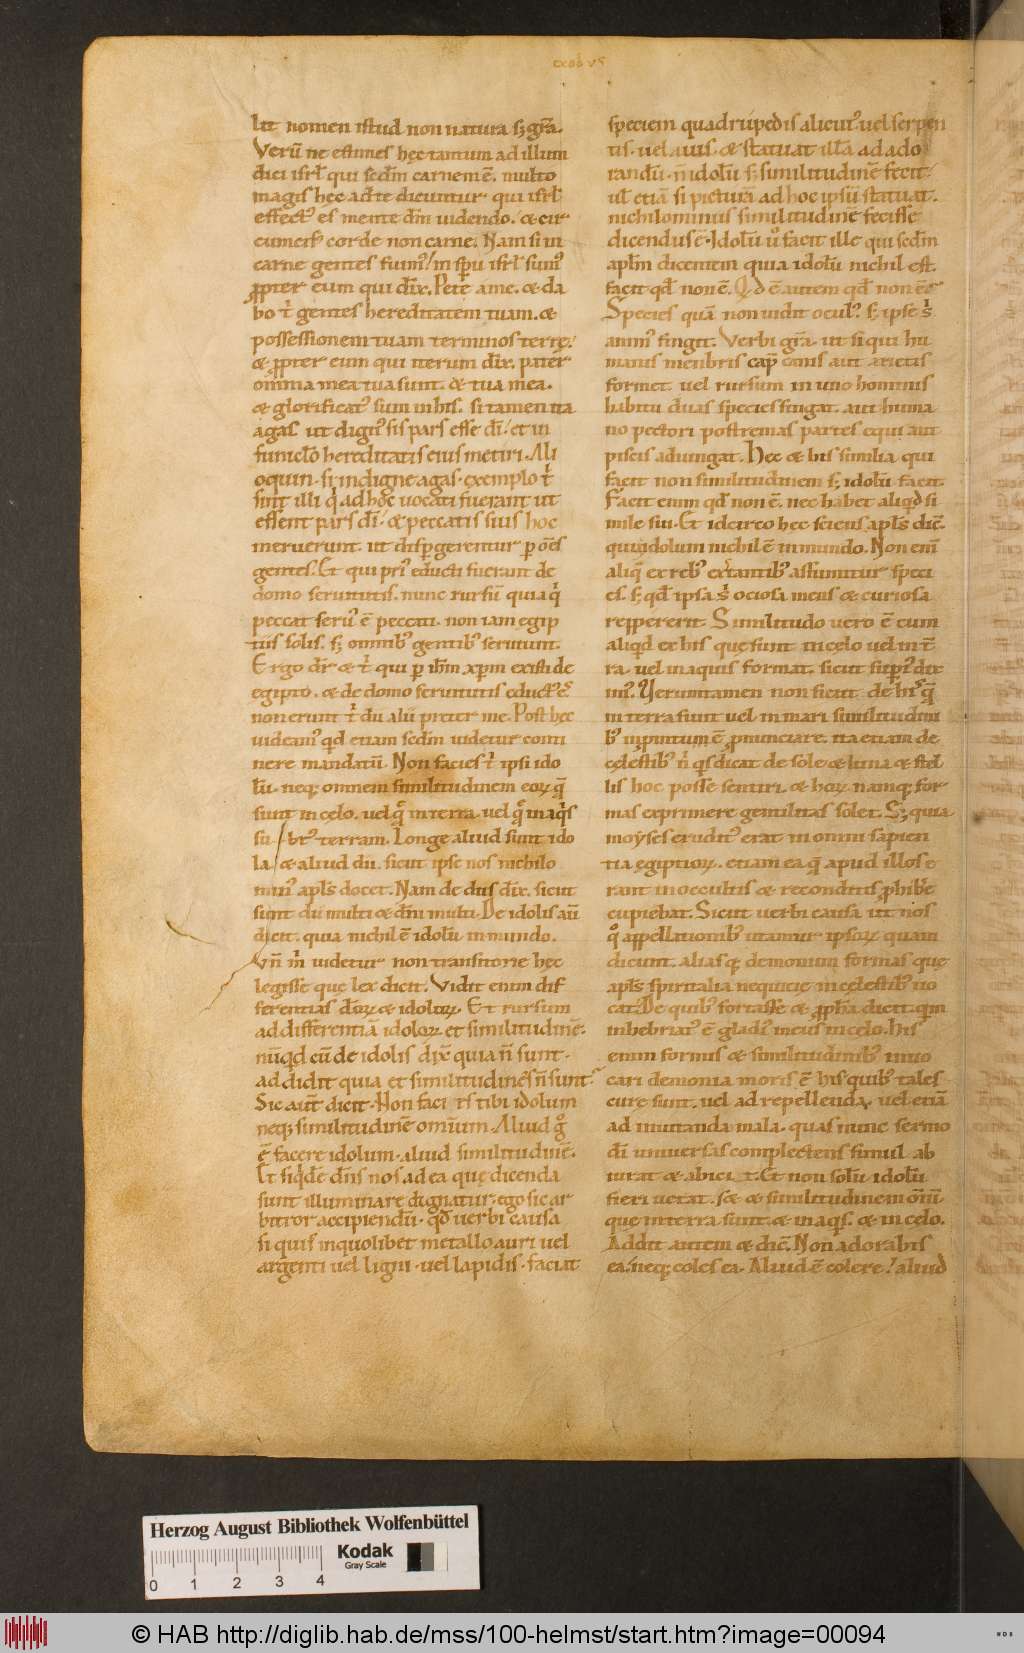 EXODVS
lit nomen istud non natura sʒ gr̄a.
Verū ne estimes hęc tantum ad illum
dici isrl̄ qui scdm̄ carnem ē. multo
magis hęc ad te dicuntur qui isrl̄
effectꝰ es mente dm̄ uidendo. & cir
cumcisꝰ corde non carne. Nam si in
carne gentes fuimꝰ in sp̄u isrl̄ sumꝰ
ꝓpter eum qui dix̄. Pete a me. & da
bo t̄ gentes hereditatem tuam. &
possessionem tuam terminos terrę.
& ꝓpter eum qui iterum dix̄. pater
omnia mea tua sunt. & tua mea.
& glorificatꝰ sum in his. si tamen ita
agas ut dignꝰ sis pars esse dī. et in
funiclo hereditatis eius metiri. Ali
oquin. si indigne agas. exemplo t̄
sint illi q̄ ad hoc uocati fuerant ut
essent pars dī. & peccatis suis hoc
meruerunt. ut disꝑgerentur ꝑ om̄s
gentes. Et qui priꝰ educti fuerant de
domo seruitutis. nunc rursū quia q̄
peccat seruꝰ ē peccati. non iam egip
tiis solis. sʒ omnibꝰ gentibꝰ seruiunt.
Ergo dr̄ & t̄ qui ꝑ ihm̄ xpm̄ existi de
egipto. & de domo seruitutis eductꝰ es
non erunt t̄ dii alii preter me. Post hęc
uideamꝰ quid etiam scdm̄ uidetur conti
nere mandatū. Non facies t̄ ipsi ido
lū. neqʒ omnem similitudinem eoꝝ quę
sunt in cęlo. uel quę in terra. uel quę in aqis
sub terram. Longe aliud sunt ido
la. & aliud dii. sicut ipse nos nichilo
minꝰ apls̄ docet. Nam de diis dix̄. sicut
sunt dii multi & dn̄i multi. De idolis aū
dicit. quia nichil ē idolū in mundo.
Vn̄ m̄ uidetur non transitorie hęc
legisse quę lex dicit. Vidit enim dif
ferentias deoꝝ & idoloꝝ. Et rursum
ad differentiā idoloꝝ et similitudinē.
nā qd cū de idolis dix̄ quia n̄ sunt.
addidit quia et similitudines n̄ sunt.
Sic aūt dicit. Non facies tibi idolum
neqʒ similitudinē omnium. Aliud g̊
ē facere idolum. aliud similitudinē.
Et siqdē dn̄s nos ad ea quę dicenda
sunt illuminare dignatur. ego sic ar
bitror accipiendū. qd uerbi causa
si quis in quolibet metallo auri uel
argenti uel ligni. uel lapidis. faciat
speciem quadrupedis alicuiꝰ uel serpen
tis. uel auis. & statuat illā ad ado
randū. n̄ idolū sʒ similitudinē fecit.
ul̄ etiā si picturā ad hoc ipsū statuat.
nichilominus similitudinē fecisse
dicendus ē. Idolū u̾ facit ille qui scdm̄
aplm̄ dicentem quia idolū nichil est.
facit qd non ē. Qd ē autem qd non ē?
Species quā non uidit oculꝰ. sʒ ipse s̄
animꝰ fingit. Verbi gr̄a ut si qui hu
manis membris cap̄ canis aut arietis
formet. uel rursum in uno hominis
habitu duas species fingat. aut huma
no pectori postremas partes equi aut
piscis adiungat. Hęc & his similia qui
facit non similitudinem sʒ idolū facit.
Facit enim qd non ē. nec habet aliqd si
mile sui. Et idcirco hęc sciens apls̄ dic̄.
quia idolum nichil ē in mundo. Non enī
aliq̄ ex rebꝰ extantibꝰ assumitur speci
es. sʒ qd ipsa s̄ ociosa mens & curiosa
reppererit. Similitudo uero ē cum
aliqd ex his quę sunt in cęlo uel in t̄
ra. uel in aquis format. sicut supꝰ dix
imꝰ. Verumtamen non sicut de his quę
in terra sunt uel in mari similitudini
bꝰ inpmtum ē ꝓnunciare. ita etiam de
cęlestibꝰ n̄ qis dicat de sole & luna & stel
lis hoc posse sentiri. & hoꝝ namqʒ for
mas exprimere gentilitas solet. Sʒ quia
moyses eruditꝰ erat in omni sapien
tia egiptioꝝ. etiam ea quę apud illos e
rant in occultis & reconditis ꝓhibere
cupiebat. Sicut uerbi causa ut nos
qꝫ appellationibꝰ utamur ipsoꝝ quam
dicunt. aliasqʒ demonum formas quę
apls̄ spiritalia nequicię in cęlestibꝰ uo
cat. De quibꝰ fortasse & ꝓph̄a dicit. quia
inhebriatꝰ ē gladiꝰ meus in cęlo. His
enim formis & similitudinibꝰ inuo
cari demonia moris ē his quibꝰ tales
curę sunt. uel ad repellenda. uel etiā
ad inuitanda mala. quas nunc sermo
dī uniuersas complectens simul ab
iurat & abicit. Et non solū idolū
fieri uetat. sed & similitudinem omniū
quę in terra sunt. & in aqis. & in cęlo.
Addit autem & dic̄. Non adorabis
ea. neqʒ coles ea. Aliud ē colere. aliud
Herzog August Bibliothek Wolfenbüttel
0 1 2 3 4
Kodak
Gray Scale
© HAB http://diglib.hab.de/mss/100-helmst/start.htm?image=00094